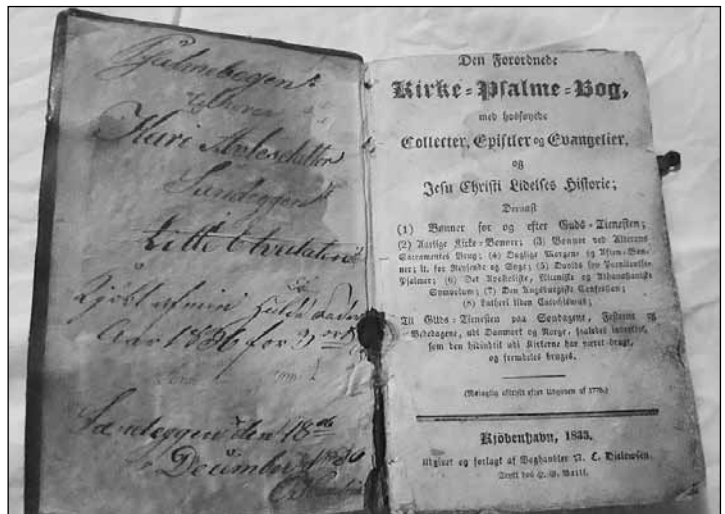 Psalmebogen
tilhører
Kari Molesdatter
Sundeggen
Kjøbt af min
Aar 1836 for 3 ort
den 18de
December 1836
Den Forordnede
Kirke-Psalme-Bog,
med hosføyede
Collecter, Epistler og Evangelier,
og
Jesu Christi Lidelses Historie;
Dernæst
(1) Bønner for og efter Guds-Tienesten;
(2) Aarlige Kirke-Bønner; (3) Bønner ved Alterens
Sacramentes Brug; (4) Daglige Morgens og Aften-Bøn-
ner; it. for Reysende og Syge; (5) Davids syv Poenitentse-
Psalmer; (6) Det Apostoliske, Nicæniske og Athanasianiske
Symbolum; (7) Den Augsburgiske Confession;
(8) Lutheri liden Catechismus;
Til Guds-Tienesten paa Søndagene, Festerne og
Bededagene, udi Danmark og Norge, saaledes indrettet,
som den hidindtil udi Kirkerne har været brugt,
og fremdeles bruges.
(Nøiagtig aftrykt efter Udgaven af 1778.)
Kjöbenhavn, 1833.
Udgivet og forlagt af Boghandler N. C. Ditlewsen.
Trykt hos